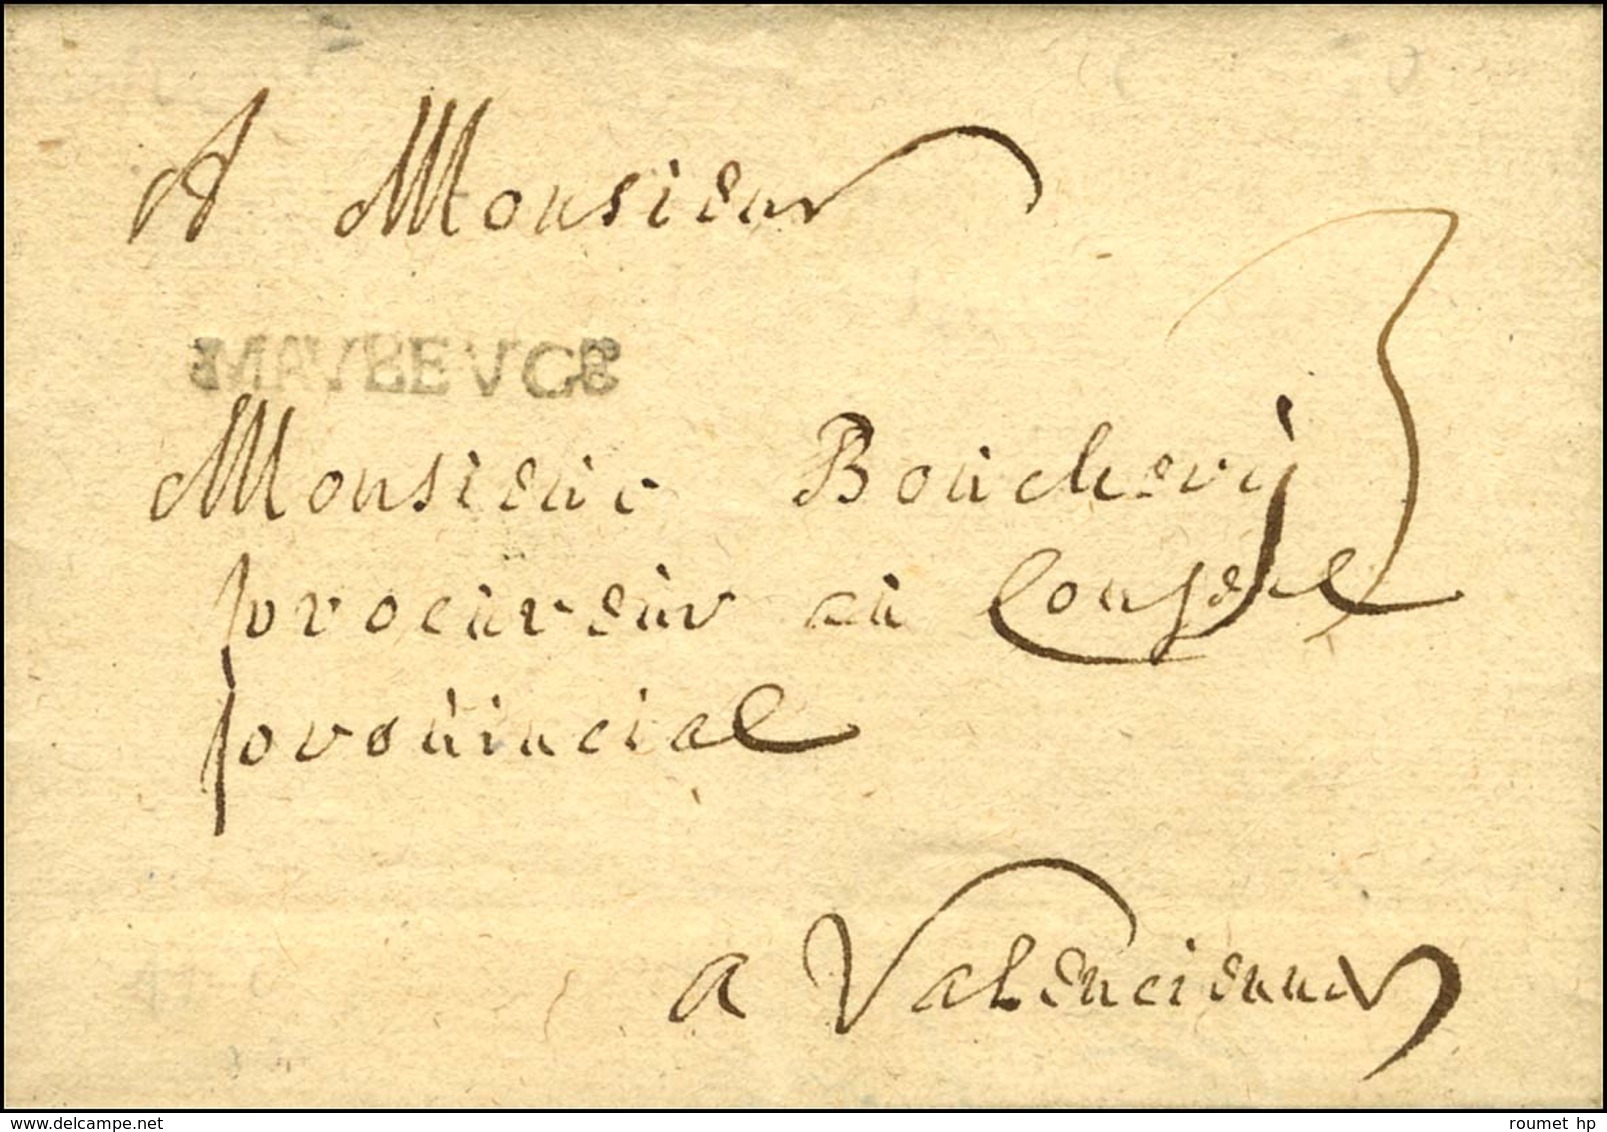 A Monsieur
3
MAVBEVGE
Monsieur Bouchery
procureur au Conseil
provincial
a Valenciennes
www.delcampe.net
roumet hp